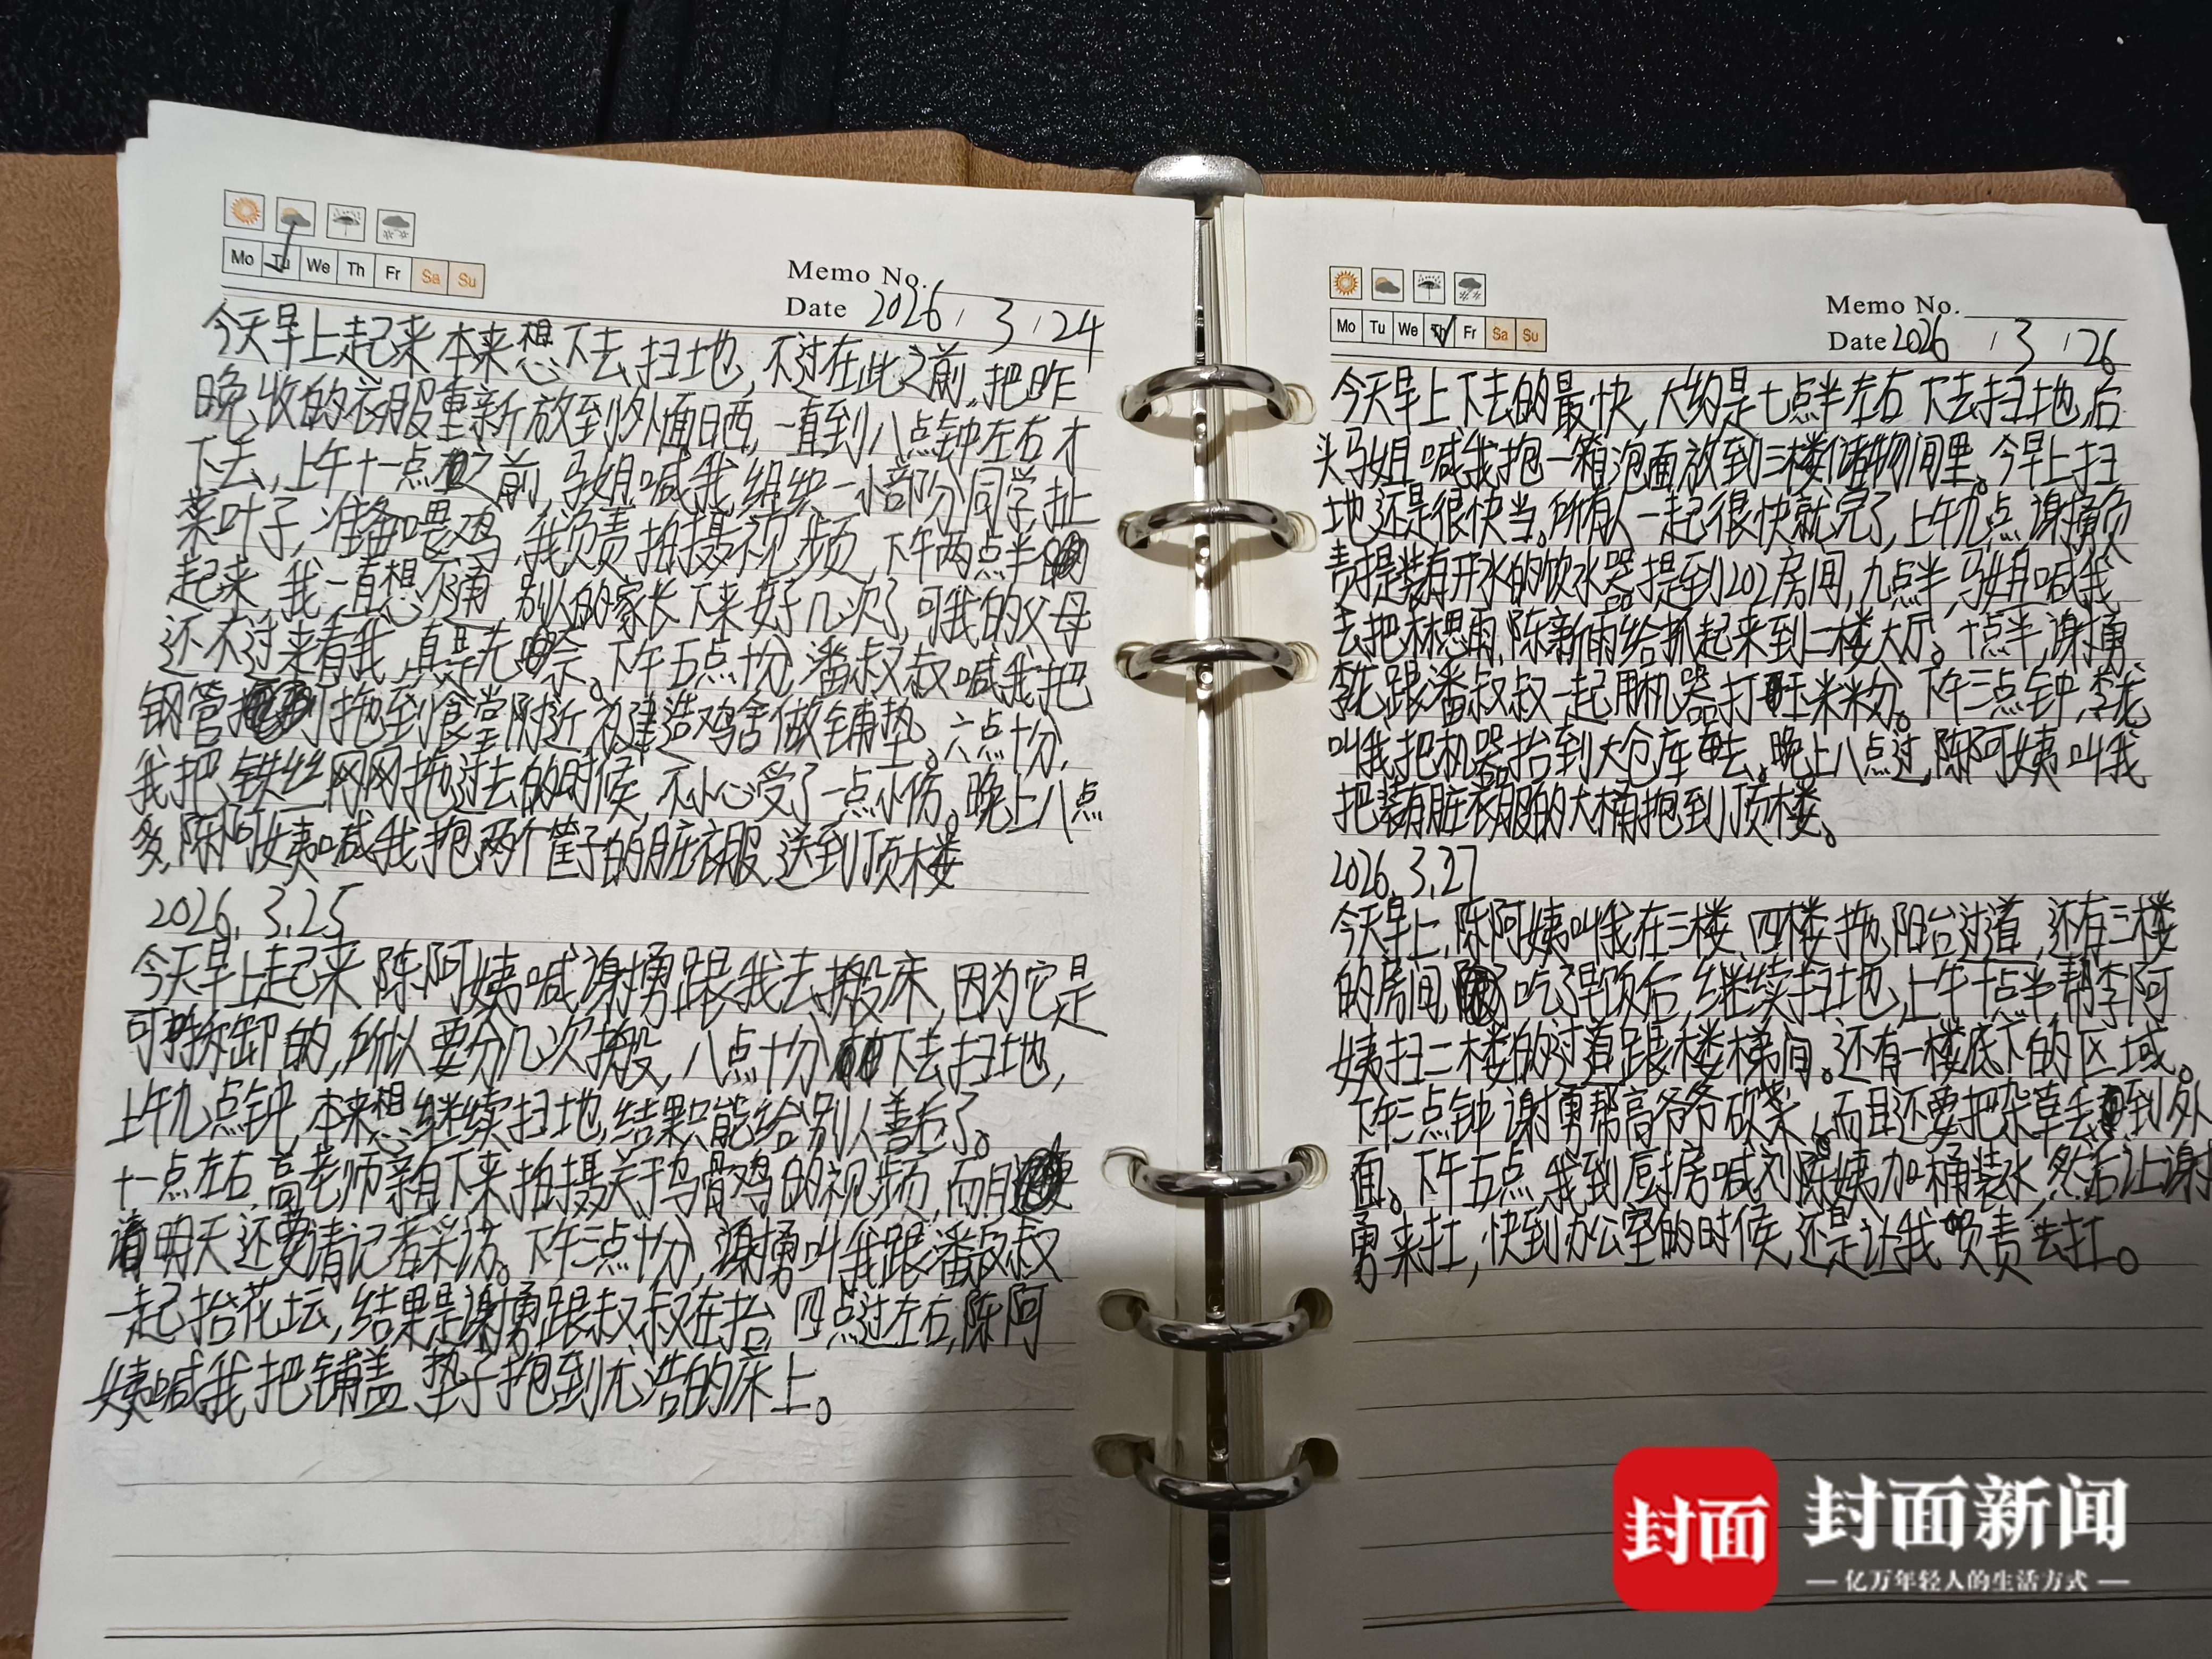 Mo Tu We Th Fr Sa Su
Memo No.
Date 2026 / 3 / 24
今天早上起来本来想下去扫地,不过在此之前,把昨
晚收的衣服重新放到外面日晒,一直到八点钟左右才
下去,上午十一点之前,马姐喊我组织一小部分同学扯
菜叶子,准备喂鸡,我负责拍摄视频,下午两点半
起来,我一直想不通,别人的家长下来好几次了,可我的父母
还不过来看我,真是无奈。下午五点十分,潘叔叔喊我把
钢管拖到食堂附近,为建造鸡舍做铺垫。六点十分,
我把铁丝网网拖过去的时候,不小心受了一点小伤。晚上八点
多,陈阿姨喊我抱两个筐子的脏衣服送到顶楼
2026.3.25
今天早上起来,陈阿姨喊谢勇跟我去搬床,因为它是
可拆卸的,所以要分几次搬,八点十分下去扫地,
上午九点钟,本来想继续扫地,结果只能给别人善后了。
十一点左右,高老师亲自下来拍摄关于乌骨鸡的视频,而且
明天还要请记者采访。下午三点十分,谢勇叫我跟潘叔叔
一起抬花坛,结果是谢勇跟叔叔在抬,四点过左右,陈阿
姨喊我把铺盖、垫子抱到尤浩的床上。
Mo Tu We Th Fr Sa Su
Memo No.
Date 2026 / 3 / 26
今天早上下去的最快,大约是七点半左右下去扫地,后
头马姐喊我抱一箱泡面放到三楼储物间里。今早上扫
地还是很快当。所有人一起很快就完了,上午九点,谢勇负
责提装有开水的饮水器提到202房间,九点半,马姐喊我
去把林想雨,陈新雨给抓起来到二楼大厅。十点半,谢勇
李龙跟潘叔叔一起用机器打米米粉。下午三点钟,李龙
叫我把机器抬到大仓库去。晚上八点过,陈阿姨叫我
把装有脏衣服的大桶抱到顶楼。
2026.3.27
今天早上,陈阿姨叫我在三楼、四楼拖阳台过道,还有三楼
的房间,吃了早饭后,继续扫地,上午十点半,帮李阿
姨扫二楼的过道跟楼梯间。还有一楼底下的区域。
下午三点钟,谢勇帮高爷爷砍菜,而且还要把杂草丢到外
面。下午五点,我到厨房喊刘陈姨加桶装水,然后让谢
勇来扛,快到办公室的时候,还是让我负责去扛。
封面
封面新闻
亿万年轻人的生活方式